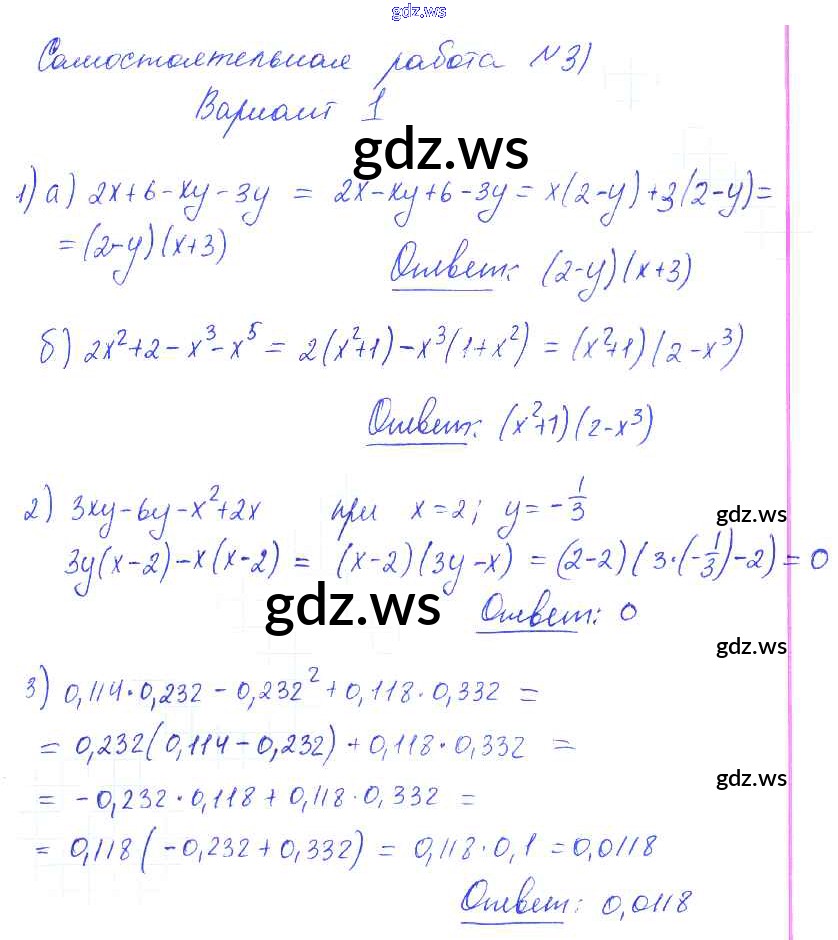 gdz.ws
Самостоятельная работа №3)
Вариант 1
gdz.ws
1) а) 2x+6-xy-3y = 2x-xy+6-3y = x(2-y)+3(2-y)=
=(2-y)(x+3)
Ответ: (2-y)(x+3)
б) 2x²+2-x³-x⁵ = 2(x²+1)-x³(1+x²) = (x²+1)(2-x³)
Ответ: (x²+1)(2-x³)
2) 3xy-6y-x²+2x при x=2; y=-1/3
gdz.ws
3y(x-2)-x(x-2) = (x-2)(3y-x) = (2-2)(3·(-1/3)-2)=0
gdz.ws
Ответ: 0
gdz.ws
3) 0,114·0,232-0,232²+0,118·0,332 =
= 0,232(0,114-0,232)+0,118·0,332 =
gdz.ws
= -0,232·0,118+0,118·0,332 =
= 0,118(-0,232+0,332) = 0,118·0,1=0,0118
Ответ: 0,0118